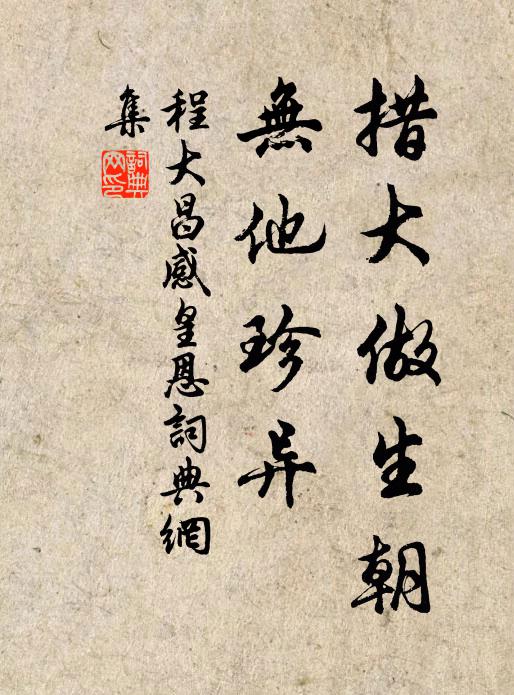 措大做生朝
無他珍异
程大昌感皇恩詞典網
集
詞典
网印